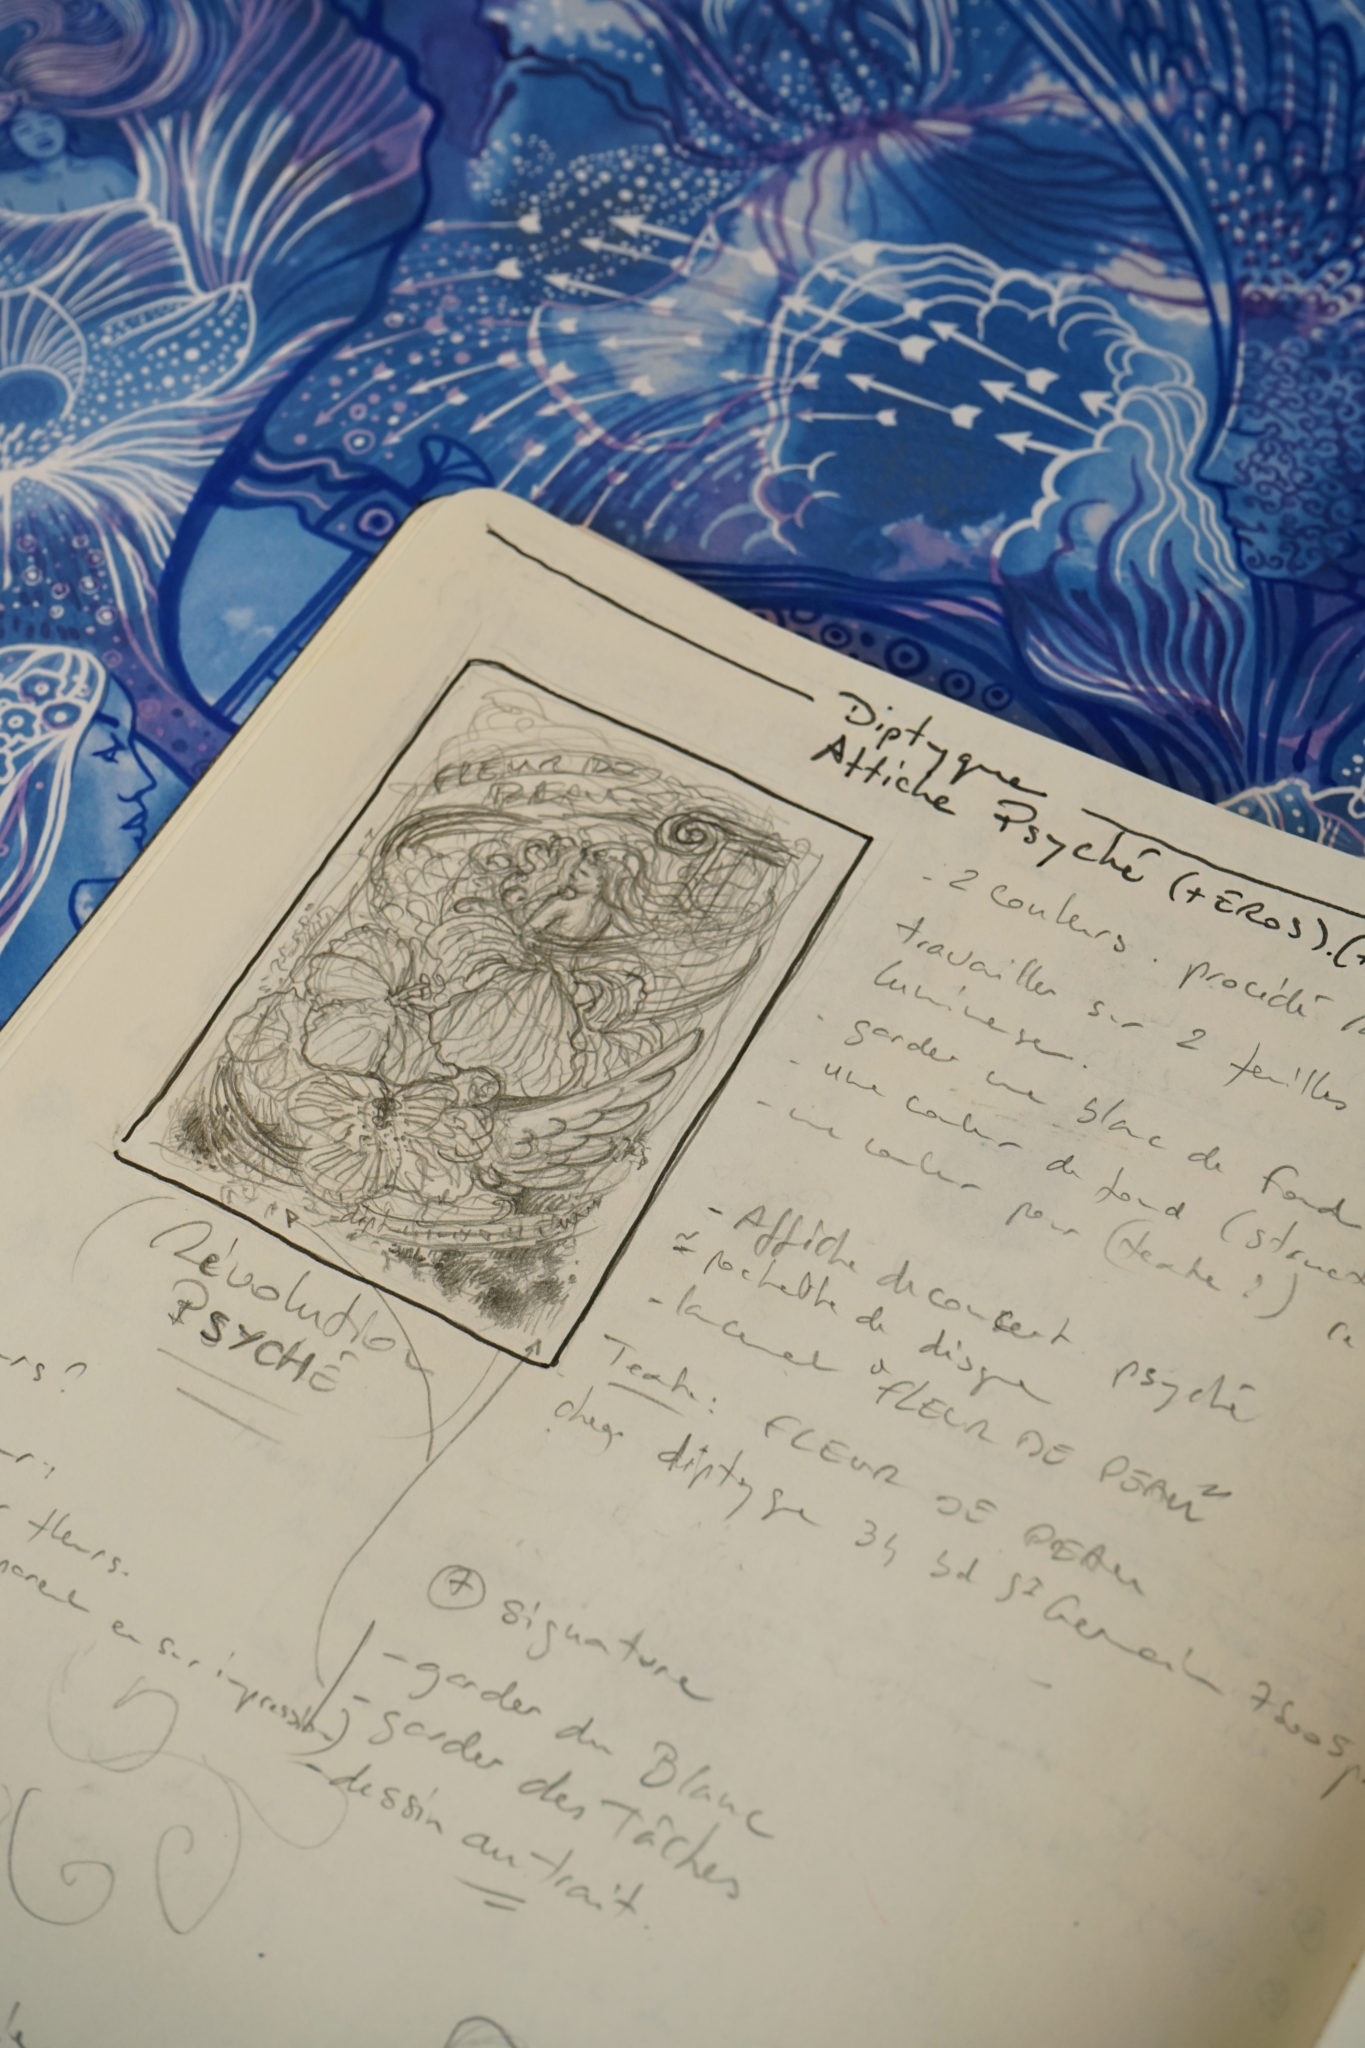 Diptyque
Affiche Psyché (+ EROS). (+
FLEUR DE
PEAU
- 2 couleurs. procédé
travailler sur 2 feuilles
lumineuse.
- garder une blanc de fond
- une couleur de fond (struct
- une couleur pour (texte ?)
- Affiche de concert psyché
≈ pochette de disque
- lancement "FLEUR DE PEAU"
Texte : FLEUR DE PEAU
chez diptyque 34 bd St Germain 75005
Révolution
PSYCHÉ
rs ?
fleurs.
en surimpression)
+ signature
- garder du Blanc
- garder des Tâches
- dessin au trait.